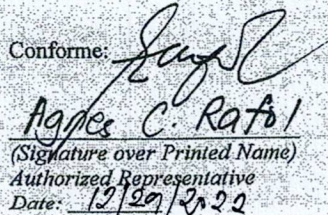 Conforme:
Agnes C. Rafol
(Signature over Printed Name)
Authorized Representative
Date: 12/29/2022